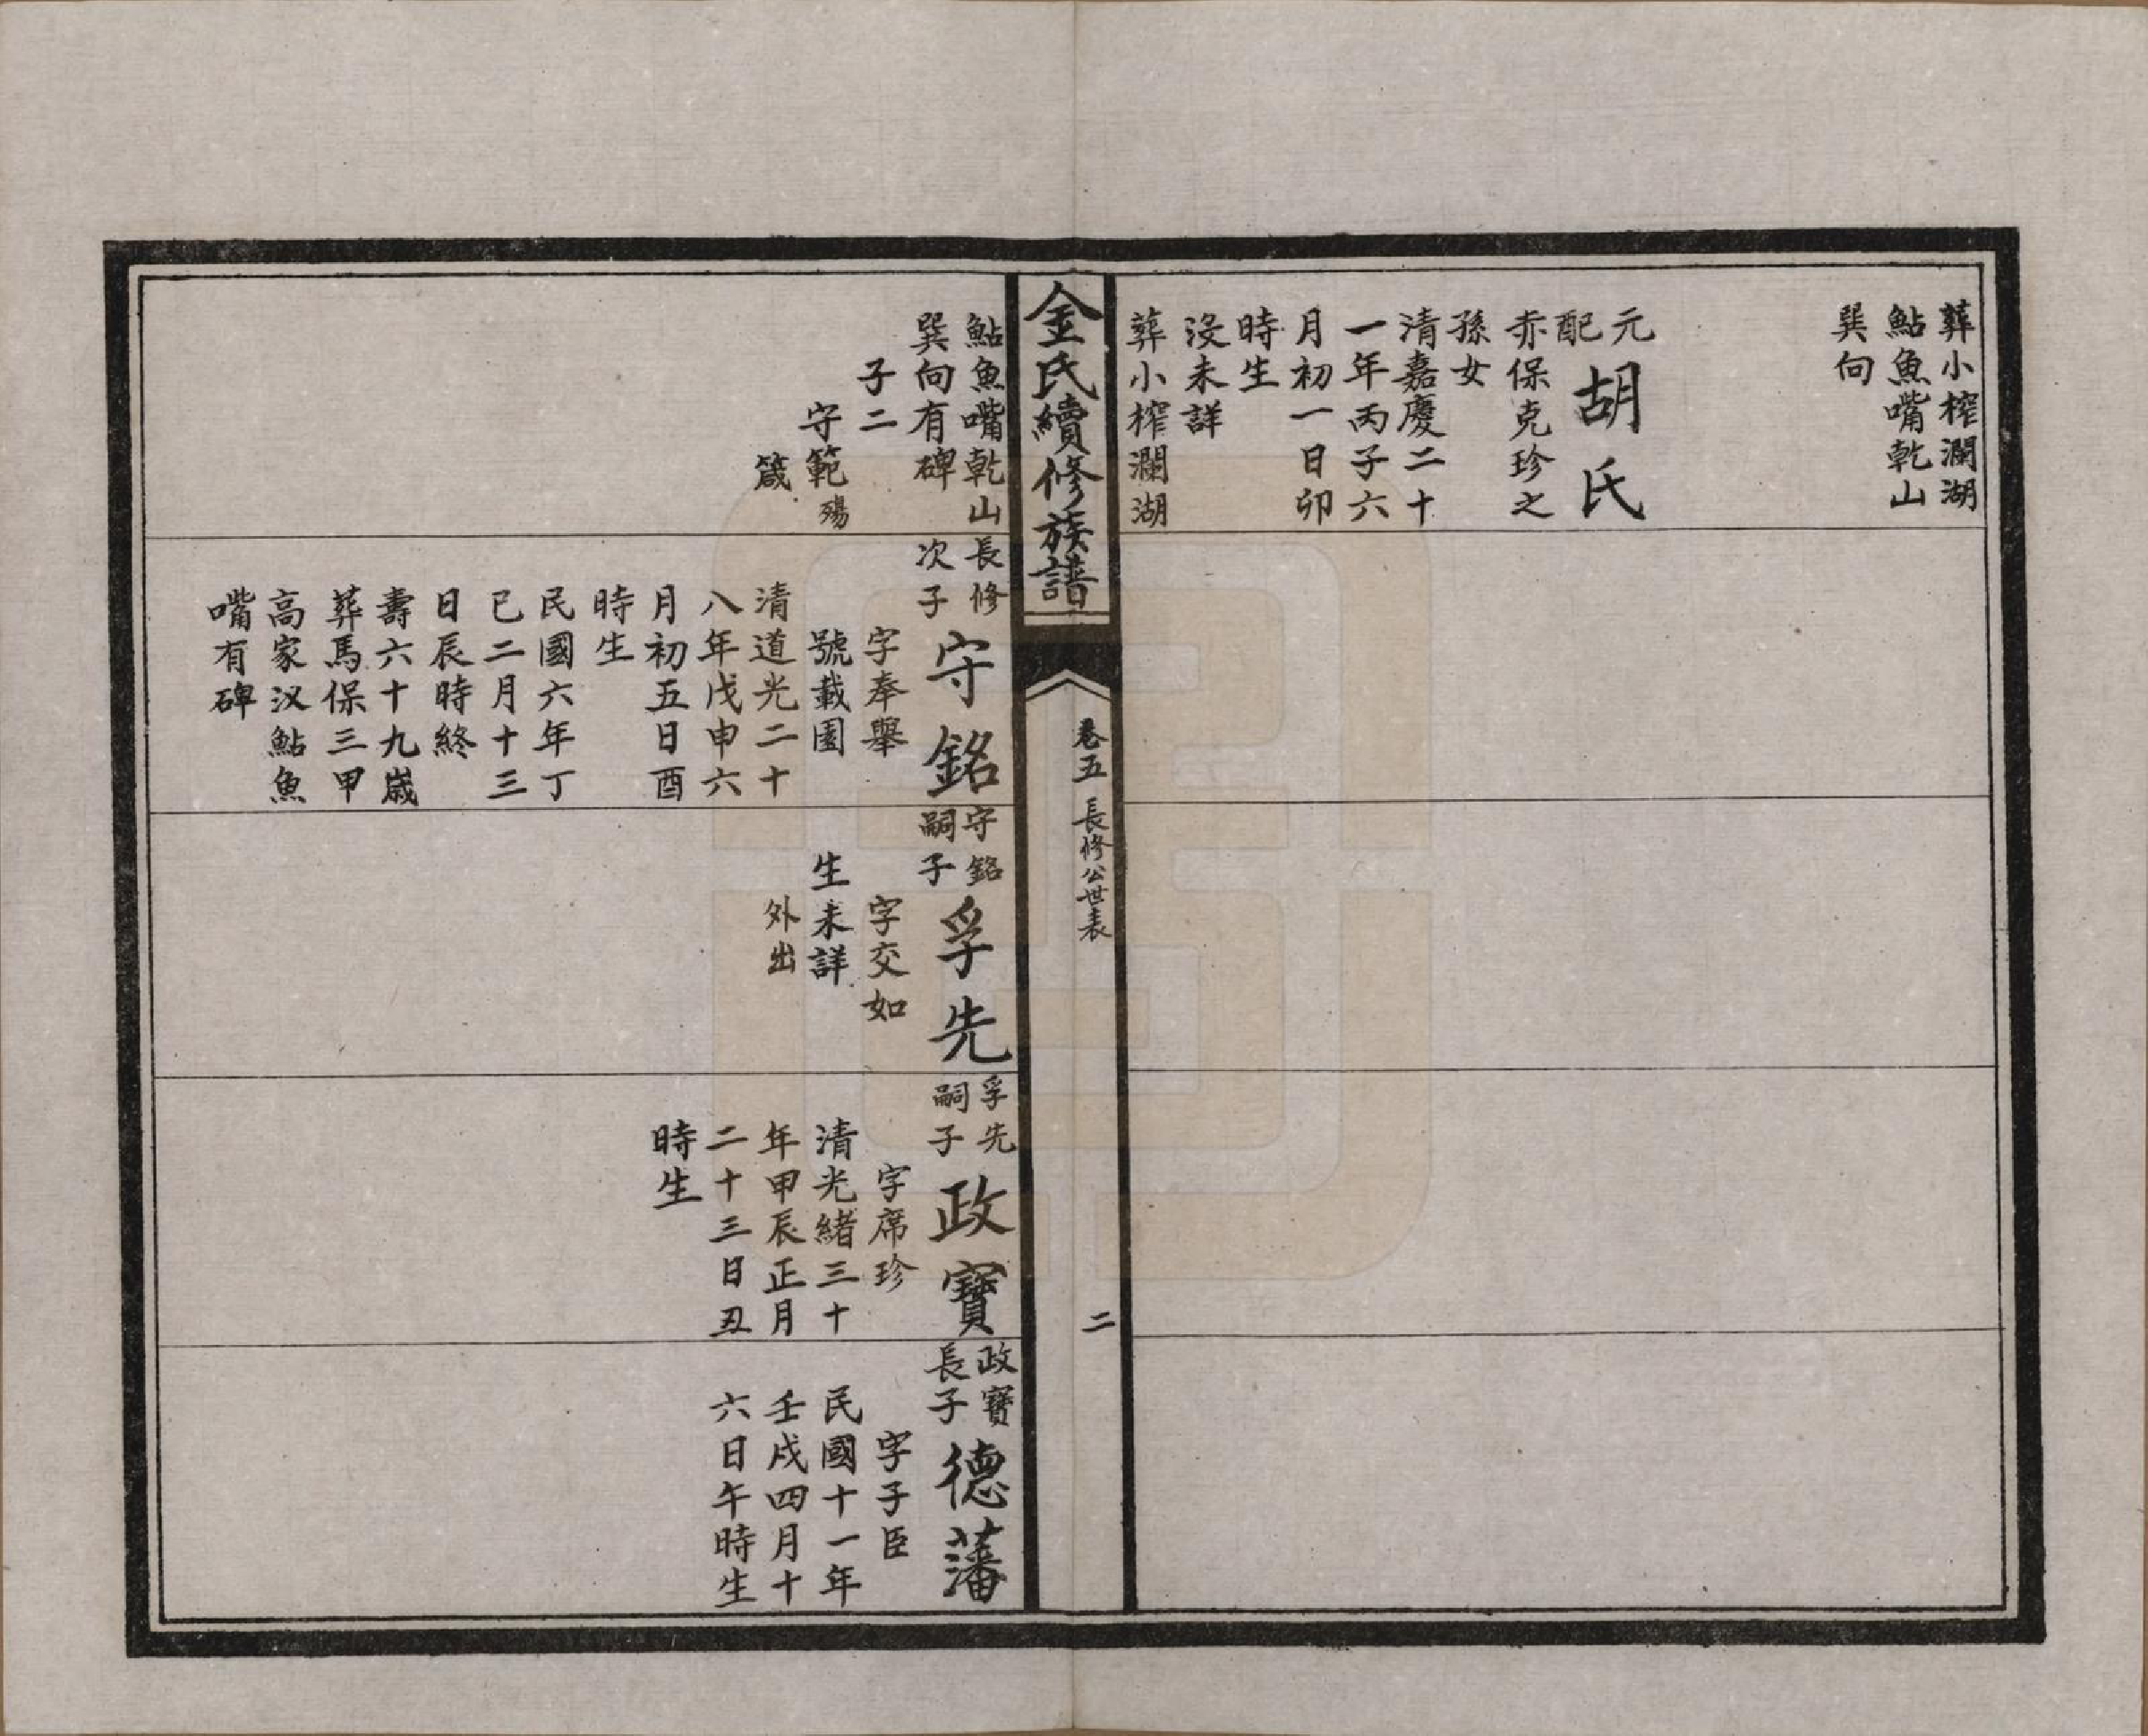 葬小榨瀾湖
鮎魚嘴乾山
巽向
元配
胡氏
赤保克珍之
孫女
清嘉慶二十
一年丙子六
月初一日卯
時生
沒未詳
葬小榨瀾湖
金氏續修族譜
卷五
長修公世表
二
鮎魚嘴乾山
巽向有碑
子二
守範殤
箴
長修
次子
守銘
字奉舉
號載園
清道光二十
八年戊申六
月初五日酉
時生
民國六年丁
巳二月十三
日辰時終
壽六十九歲
葬馬保三甲
高家汊鮎魚
嘴有碑
守銘
嗣子
孚先
字交如
生未詳
外出
孚先
嗣子
政寶
字席珍
清光緒三十
年甲辰正月
二十三日丑
時生
政寶
長子
德藩
字子臣
民國十一年
壬戌四月十
六日午時生